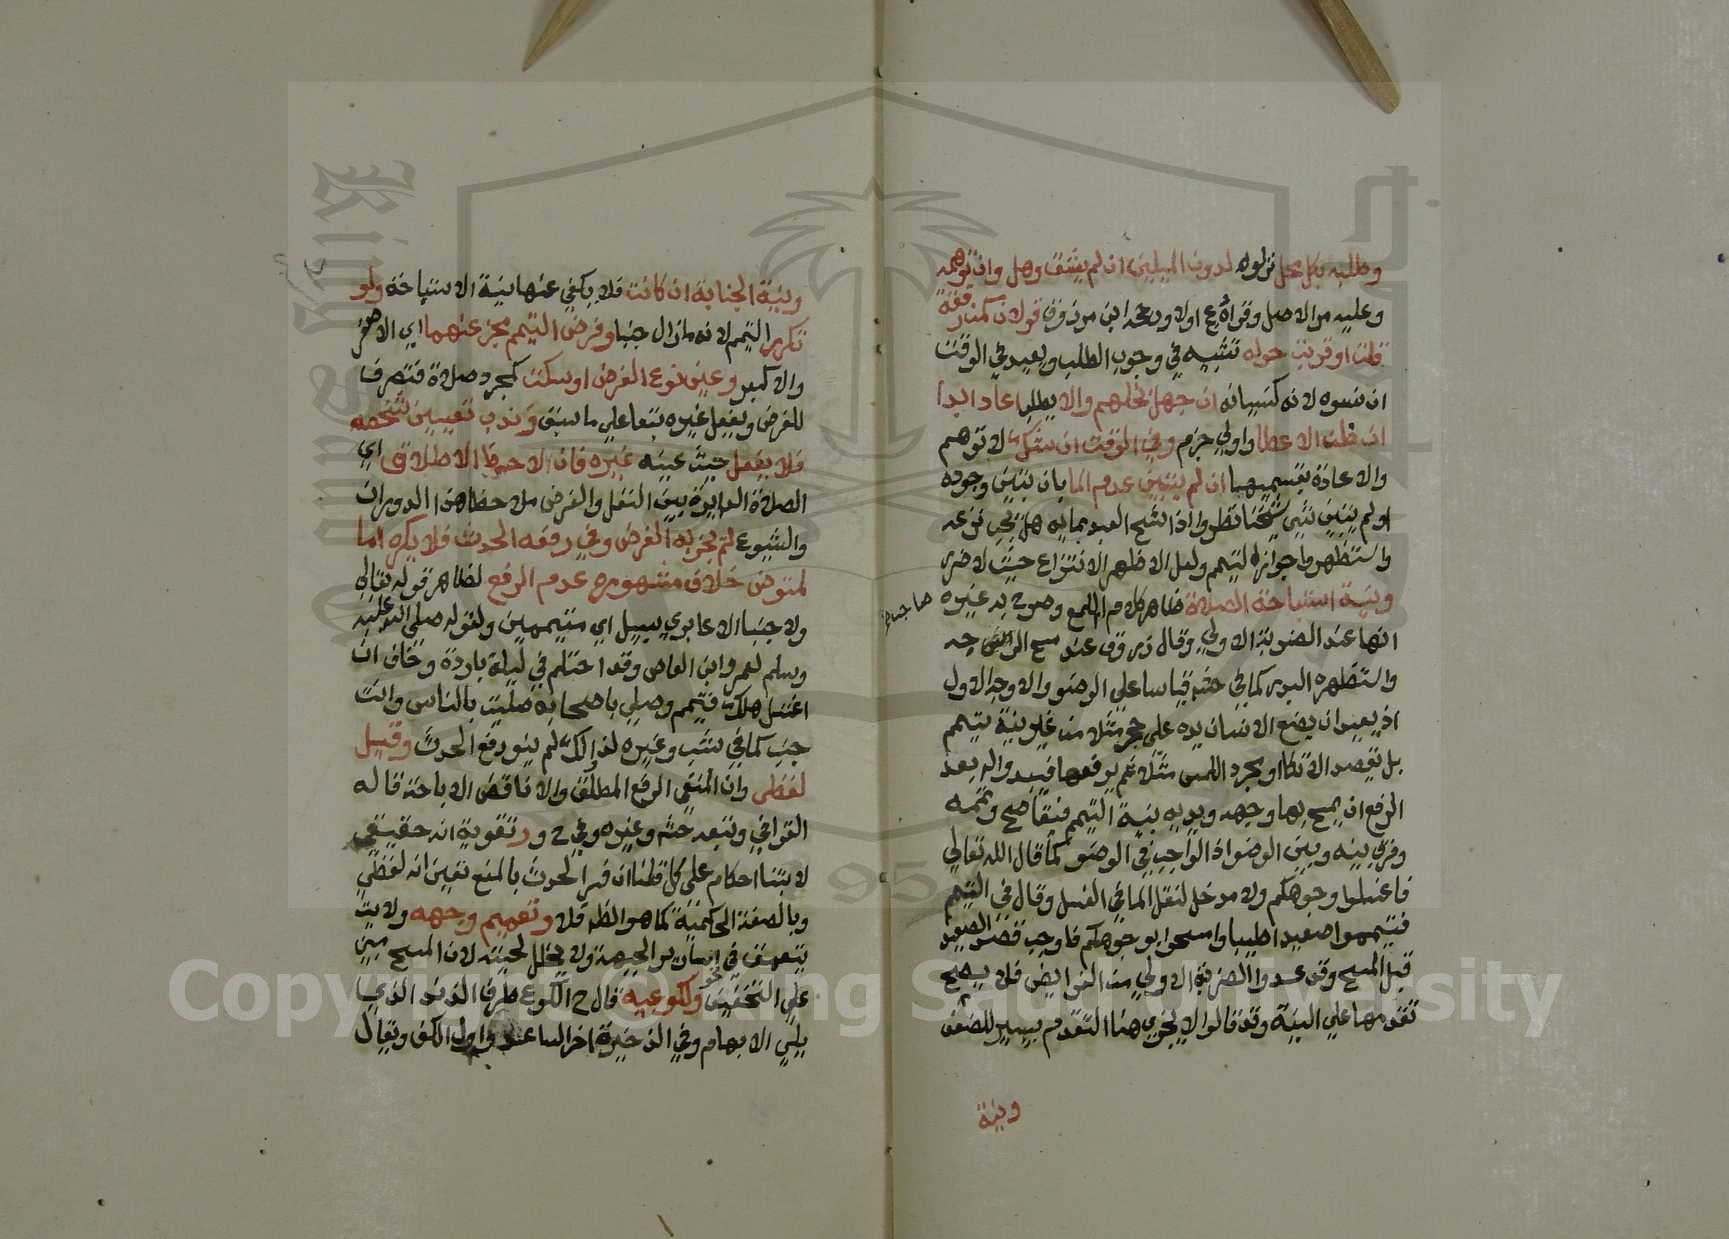 وطلبه بكل محل نزلوه لدون الميلين ان لم يشق وهل وان توهمه
وعليه مر الاصل وقواه ع اولا ورجحه ابن مرزوق قولان كمن رفقة
قلت او قربت حوله تشبيه في وجوب الطلب ويعيد في الوقت
ان نسوه لانه كنسيانه ان جهل بخلهم والا يطلب اعاد ابدا
ان ظن الاعطا واولى جزم وفي الوقت ان شك لا توهم
والاعادة بقسميها ان لم يتبين عدم الما بان تبين وجوده
او لم يتبين شي شيخنا نظر واذا شح العبد بمائه هل يجب نزعه
واستظهر ما جوازه لتيمم ولعل الاظهر الانتزاع حيث لا ضرر
ونية استباحة الصلاة ظاهر كلام اللمع وصوح به غيره
صاحبها
انها عند الضربة الاولى وقال زروق عند مسح الوجه
واستظهره البدر كما في حشه قياسا على الوضو والاوجه الاول
اذ يبعد ان يضع الانسان يده على حجر مثلا من غير نية تيمم
بل بقصد الاتكا او مجرد اللمس مثلا ثم يرفعها فيبدو له بعد
الرفع ان يمسح بها وجهه ويديه بنية التيمم فيقال صح تيممه
وفرق بينه وبين الوضو اذ الواجب في الوضو كما قال الله تعالى
فاغسلوا وجوهكم ولا مدخل لنقل الما في الغسل وقال في التيمم
فتيمموا صعيدا طيبا وامسحوا بوجوهكم فاوجب قصد الصعيد
قبل المسح وقد عدوا الضربة الاولى من الفرايض فلا يصح
تقدمها على النية وقد قالوا لا يجزي هنا التقدم بيسير للضعف
ونية
ونية الجنابة ان كانت فلا يكفي عنها نية الاستباحة ولو
تكرر التيمم لانه ما زال جنبا وفرض التيمم مجز عنهما اي الاصغر
والاكبر وعين نوع الفرض او سكت كمجرد صلاة فتصرف
للفرض ويفعل غيره تبعا على ما سبق وندب تعيين شخصه
فلا يفعل حيث عينه غيره فان لاحظ الاطلاق اي
الصلاة الدايرة بين النفل والفرض ملاحظا هذا الدوران
والشيوع لم يجز به الفرض وفي رفعه الحدث فلا يكره اما
لمتوض خلاف مشهوره عدم الرفع لظاهر قوله تعالى
ولا جنبا الا عابري سبيل اي متيممين ولقوله صلى الله عليه
وسلم لعمرو ابن العاص وقد احتلم في ليلة باردة وخاف ان
اغتسل هلك فتيمم وصلى باصحابه صليت بالناس وانت
جنب كما في شب وغيره لذلك لم ينو رفع الحدث وقيل
لفظي وان المنفي الرفع المطلق والا ناقض الاباحة قاله
القرافي وتبعه حش وغيره وفي ح ور تقوية انه حقيقي
لابتنا احكام على كل قلنا ان فسر الحدث بالمنع تعين انه لفظي
وبالصفة الحكمية كما هو الظ فلا وتعميم وجهه ولا يت
يتعمق في اسارير الجبهة ولا يخلل لحيته لان المسح مبني
على التخفيف وكوعيه قال ح الكوع طرف الزند الذي
يلي الابهام وفي الذخيرة اخر الساعد واول الكف ويقال